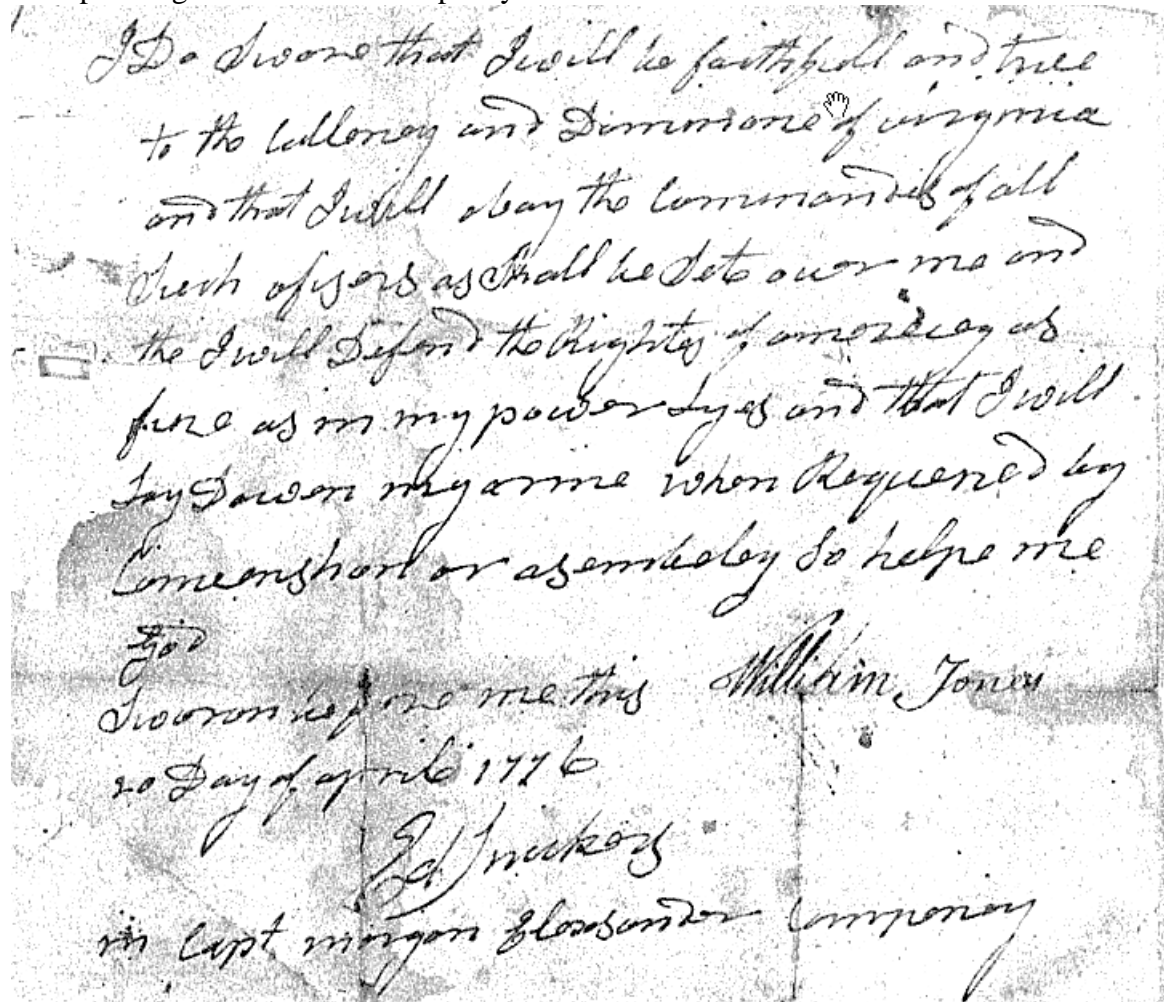 I Do Sweare that I will be faithfull and true
to the Colloney and Dominione of virginia
and that I will obay the Commandes of all
Such ofisers as Shall be Set over me and
the I will Defend the Rightes of amerecey as
fure as in my power Lyes and that I will
Lay Dowen my arme when Requered by
Comenshon or asembeley So helpe me
god
William Jones
Sworon before me this
20 Day of april 1776
Ed Snickers
in Capt morgon Elexsander Componey